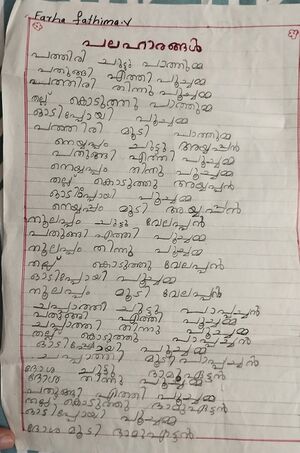 Farha fathima.v
പലഹാരങ്ങൾ
പത്തിരി ചുട്ടു പാത്തുമ്മ
പതുങ്ങി എത്തി പൂച്ചമ്മ
പത്തിരി തിന്നു പൂച്ചമ്മ
തല്ല് കൊടുത്തു പാത്തുമ്മ
ഓടിപ്പോയി പൂച്ചമ്മ
പത്തിരി മൂടി പാത്തുമ്മ
നെയ്യപ്പം ചുട്ടു അയ്യപ്പൻ
പതുങ്ങി എത്തി പൂച്ചമ്മ
നെയ്യപ്പം തിന്നു പൂച്ചമ്മ
തല്ല് കൊടുത്തു അയ്യപ്പൻ
ഓടിപ്പോയി പൂച്ചമ്മ
നെയ്യപ്പം മൂടി അയ്യപ്പൻ
നൂലപ്പം ചുട്ടു വേലപ്പൻ
പതുങ്ങി എത്തി പൂച്ചമ്മ
നൂലപ്പം തിന്നു പൂച്ചമ്മ
തല്ല് കൊടുത്തു വേലപ്പൻ
ഓടിപ്പോയി പൂച്ചമ്മ
നൂലപ്പം മൂടി വേലപ്പൻ
ചപ്പാത്തി ചുട്ടു പാപ്പച്ചൻ
പതുങ്ങി എത്തി പൂച്ചമ്മ
ചപ്പാത്തി തിന്നു പൂച്ചമ്മ
തല്ല് കൊടുത്തു പാപ്പച്ചൻ
ഓടിപ്പോയി പൂച്ചമ്മ
ചപ്പാത്തി മൂടി പാപ്പച്ചൻ
ദോശ ചുട്ടു ദാമുഏട്ടൻ
ദോശ തിന്നു പൂച്ചമ്മ
പതുങ്ങി എത്തി പൂച്ചമ്മ
തല്ല് കൊടുത്തു ദാമുഏട്ടൻ
ഓടിപ്പോയി പൂച്ചമ്മ
ദോശ മൂടി ദാമുഏട്ടൻ